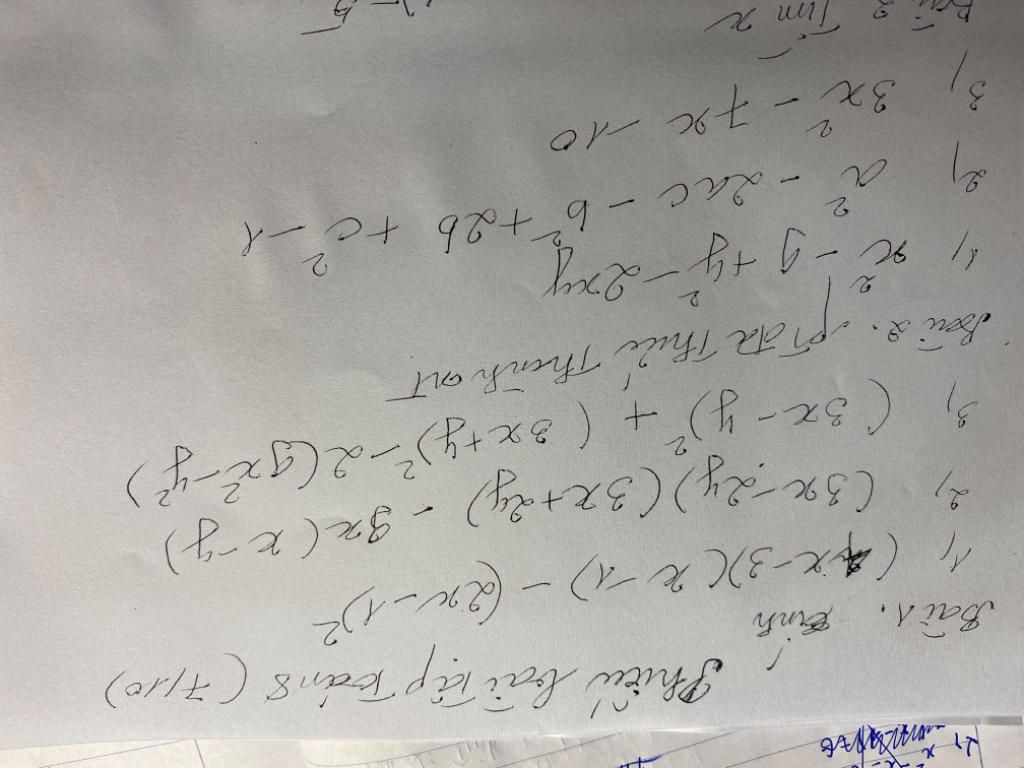 Phiếu bài tập Toán 8 (7/10)
Bài 1. Tính
1, (4x-3)(x-1) - (2x-1)²
2, (3x-2y)(3x+2y) - 9x(x-y)
3, (3x-y)² + (3x+y)² - 2(9x²-y²)
Bài 2. Pt đa Thức Thành nt
1, x² - 9 + y² - 2xy
2, a² - 2ac - b² + 2b + c² - 1
3, 3x² - 7x - 10
Tìm x